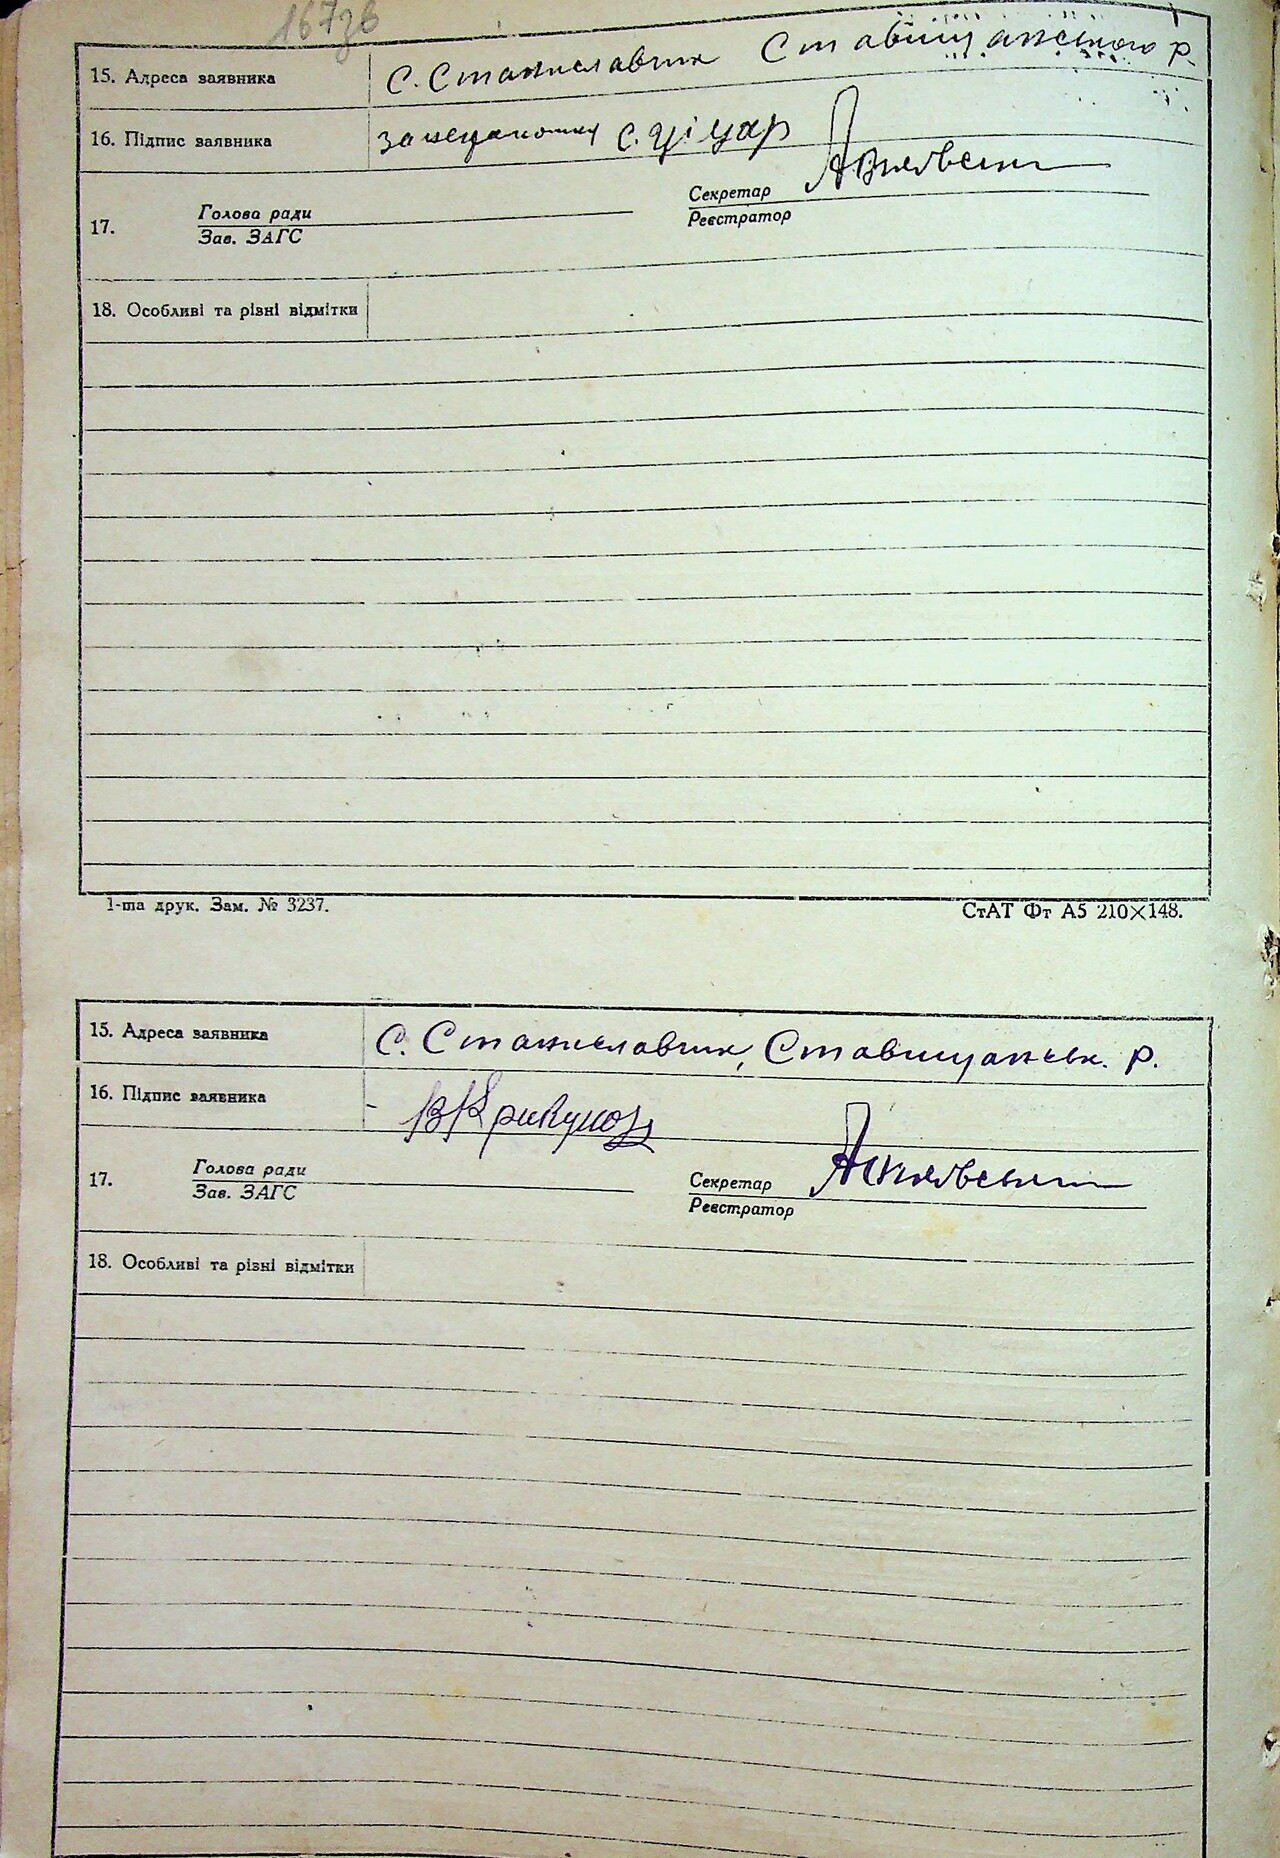 167зв
15. Адреса заявника с. Станиславчик Ставищанского р.
16. Підпис заявника за неграмотну С. Ціцар
Секретар
17. Голова ради
Реєстратор
Зав. ЗАГС
18. Особливі та різні відмітки
1-ша друк. Зам. № 3237. СтАТ Фт А5 210×148.
15. Адреса заявника с. Станиславчик, Ставищанськ. р.
16. Підпис заявника - ВКрикуноз
17. Голова ради
Секретар
Зав. ЗАГС
Реєстратор
18. Особливі та різні відмітки